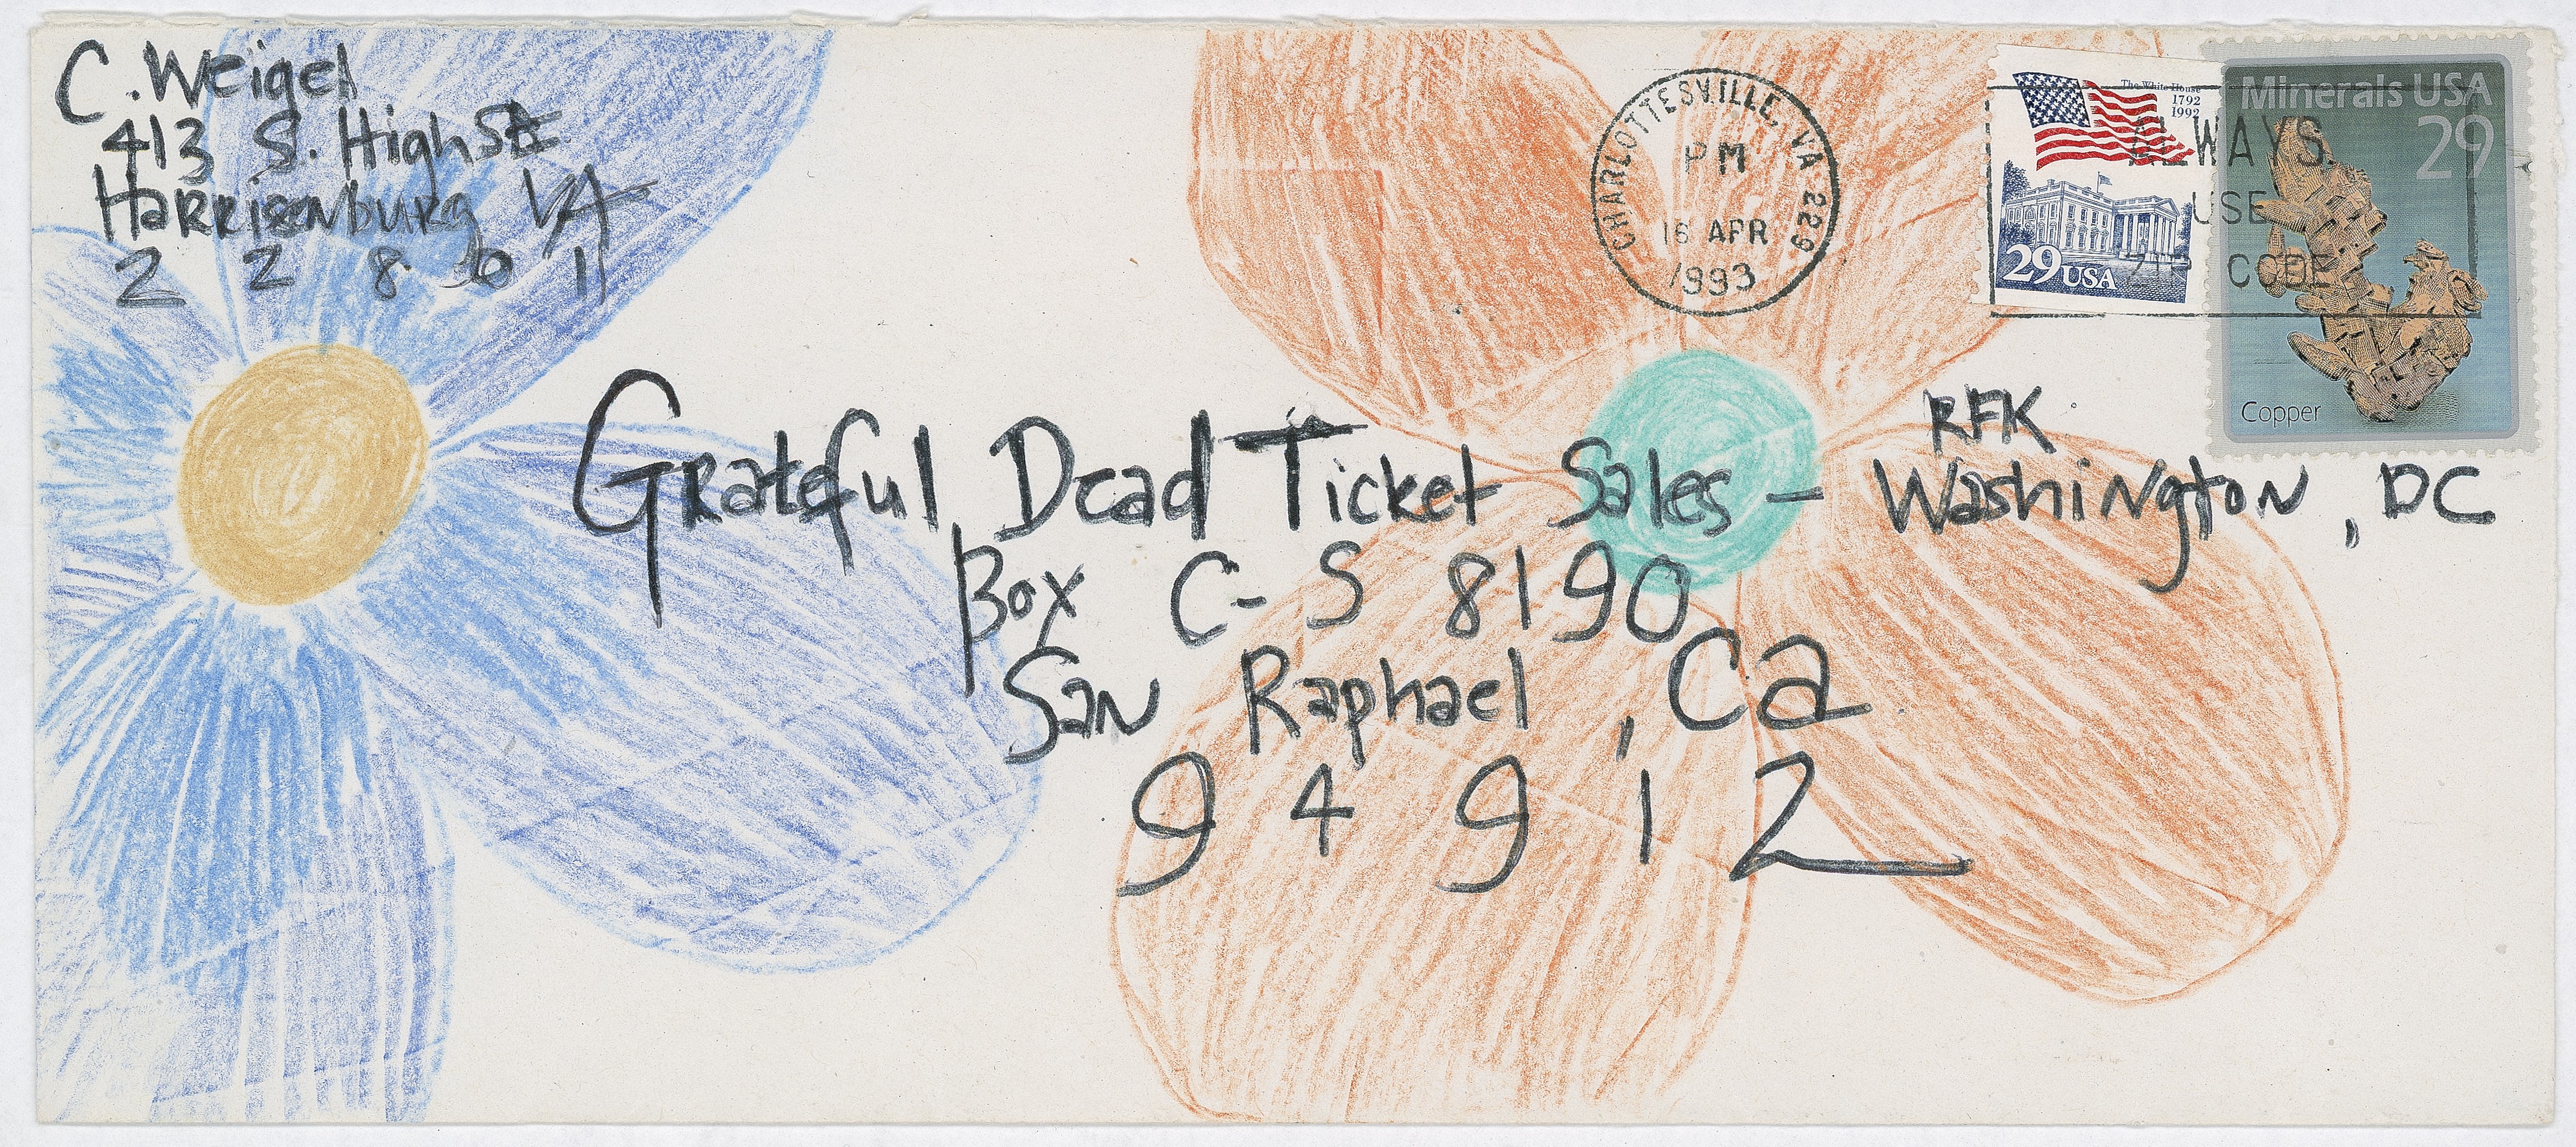 C. Weigel
413 S. High St
Harrisonburg VA
22801
CHARLOTTESVILLE, VA 229
PM
16 APR
1993
The White House
1792
1992
29 USA
ALWAYS
USE
ZIP CODE
Minerals USA
29
Copper
RFK
Grateful Dead Ticket Sales – Washington, DC
Box C-S 8190
San Raphael, Ca
94912